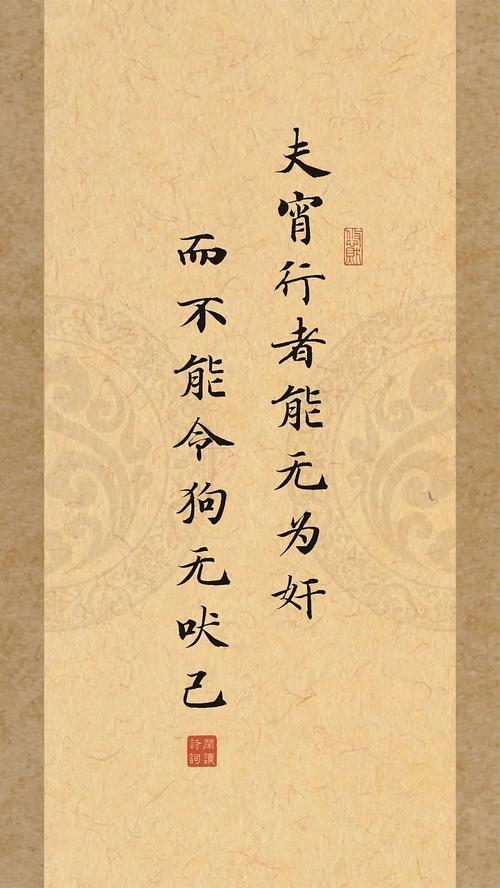 夫宵行者能无为奸
而不能令狗无吠己
閑讀
詩詞